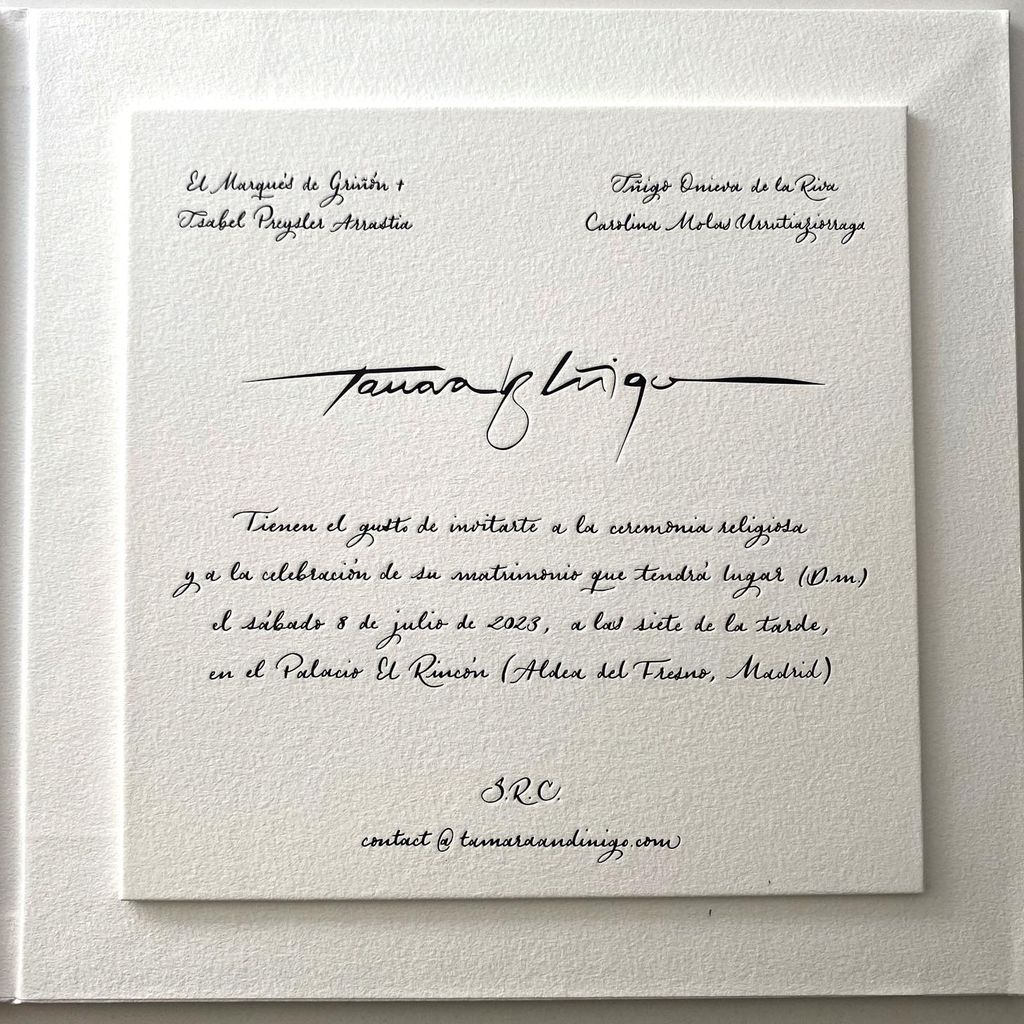 El Marqués de Griñón +
Isabel Preysler Arrastia
Íñigo Onieva de la Riva
Carolina Molas Urrutiaziorraga
Tamara & Íñigo
Tienen el gusto de invitarte a la ceremonia religiosa
y a la celebración de su matrimonio que tendrá lugar (D.m.)
el sábado 8 de julio de 2023, a las siete de la tarde,
en el Palacio El Rincón (Aldea del Fresno, Madrid)
S.R.C.
contact@tamaraandinigo.com